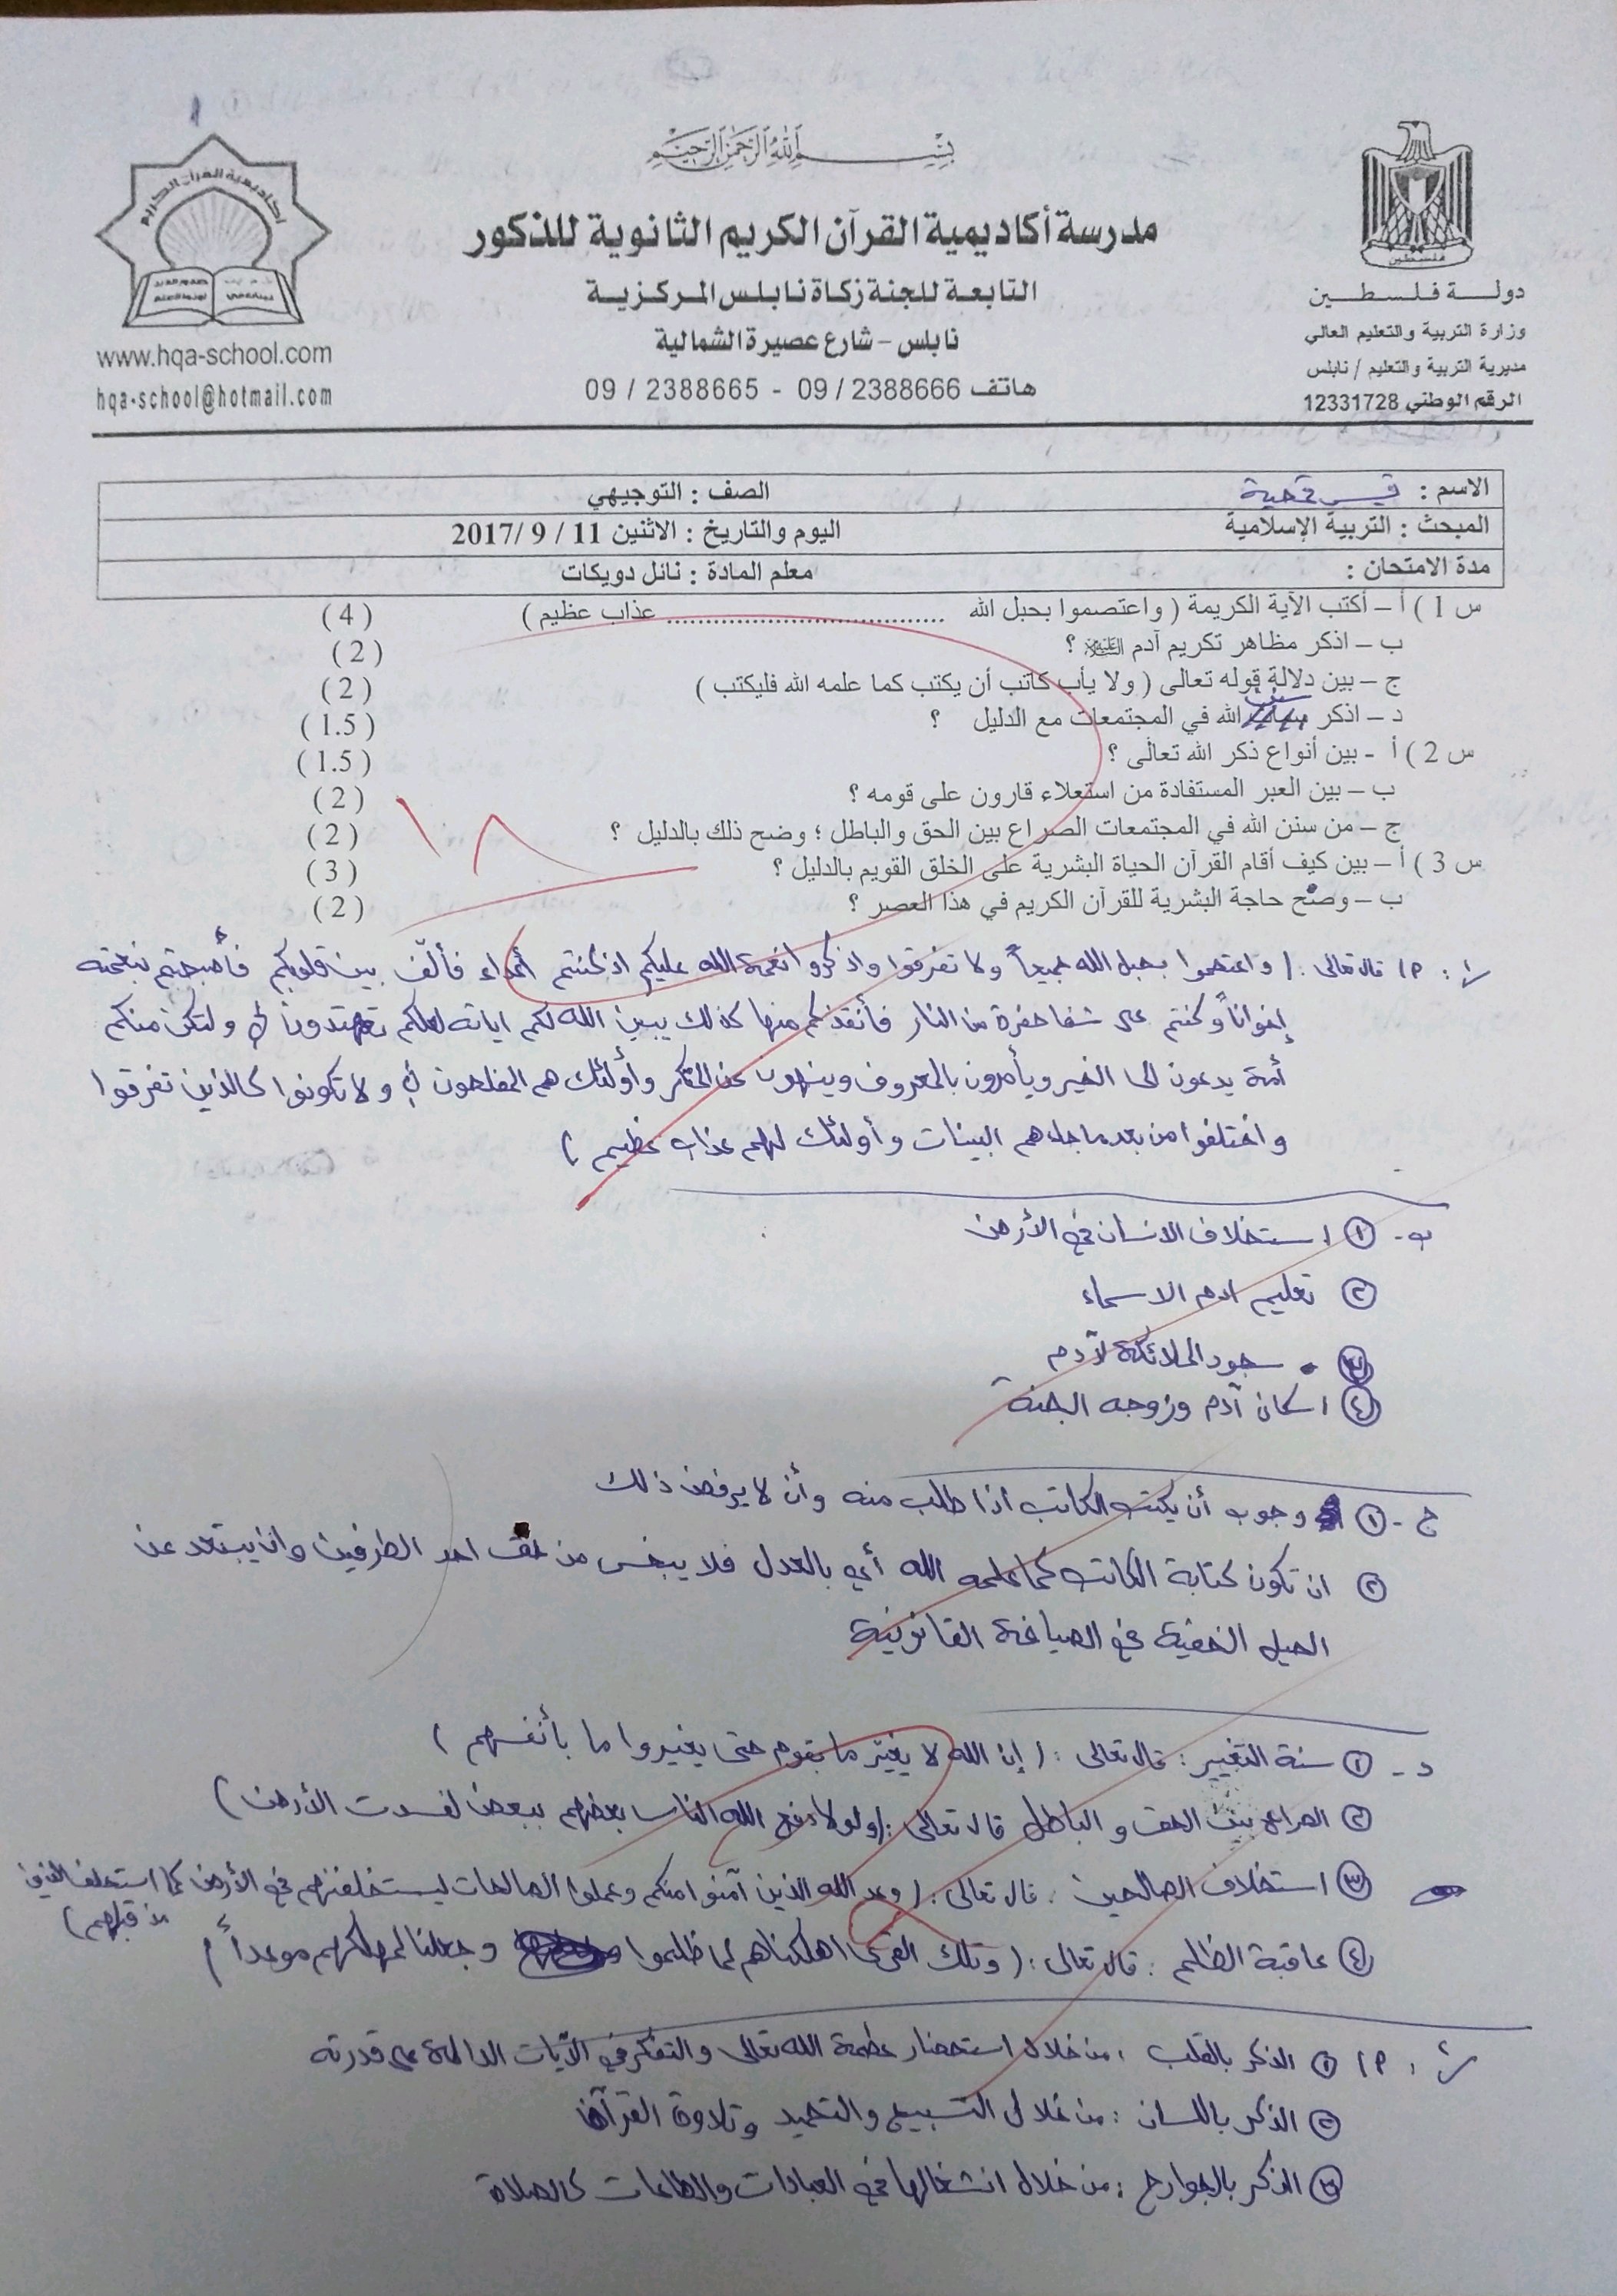 بسم الله الرحمن الرحيم
مدرسة أكاديمية القرآن الكريم الثانوية للذكور
التابعة للجنة زكاة نابلس المركزية
نابلس – شارع عصيرة الشمالية
هاتف 2388666 / 09 - 2388665 / 09
فلسطين
دولة فلسطين
وزارة التربية والتعليم العالي
مديرية التربية والتعليم / نابلس
الرقم الوطني 12331728
أكاديمية القرآن الكريم
www.hqa-school.com
hqa-school@hotmail.com
الاسم : قيس الصف : التوجيهي
المبحث : التربية الإسلامية اليوم والتاريخ : الاثنين 11 / 9 /2017
مدة الامتحان : معلم المادة : نائل دويكات
س 1 ) أ – أكتب الآية الكريمة ( واعتصموا بحبل الله ........................ عذاب عظيم ) ( 4 )
ب – اذكر مظاهر تكريم آدم عليه السلام ؟ ( 2 )
ج – بين دلالة قوله تعالى ( ولا يأب كاتب أن يكتب كما علمه الله فليكتب ) ( 2 )
د – اذكر سنن الله في المجتمعات مع الدليل ؟ ( 1.5 )
س 2 ) أ - بين أنواع ذكر الله تعالى ؟ ( 1.5 )
ب – بين العبر المستفادة من استعلاء قارون على قومه ؟ ( 2 )
ج – من سنن الله في المجتمعات الصراع بين الحق والباطل ؛ وضح ذلك بالدليل ؟ ( 2 )
س 3 ) أ – بين كيف أقام القرآن الحياة البشرية على الخلق القويم بالدليل ؟ ( 3 )
ب – وضح حاجة البشرية للقرآن الكريم في هذا العصر ؟ ( 2 )
١٨
س١ : أ) قال تعالى : ( واعتصموا بحبل الله جميعاً ولا تفرقوا واذكروا نعمة الله عليكم اذ كنتم أعداء فألّف بين قلوبكم فأصبحتم بنعمته
إخواناً وكنتم على شفا حفرة من النار فأنقذكم منها كذلك يبين الله لكم اياته لعلكم تهتدون ولتكن منكم
أمة يدعون الى الخير ويأمرون بالمعروف وينهون عن المنكر وأولئك هم المفلحون ولا تكونوا كالذين تفرقوا
واختلفوا من بعد ما جاءهم البينات وأولئك لهم عذاب عظيم )
ب - ① استخلاف الانسان في الأرض
② تعليم ادم الاسماء
③ سجود الملائكة لآدم
④ اسكان آدم وزوجه الجنة
ج - ① وجوب أن يكتب الكاتب اذا طلب منه وأن لا يرفض ذلك
② ان تكون كتابة الكاتب كما علمه الله أي بالعدل فلا يبخس من حق احد الطرفين وان يبتعد عن
الحيل الخفية في الصياغة القانونية
د - ① سنة التغيير : قال تعالى : ( إن الله لا يغيّر ما بقوم حتى يغيروا ما بأنفسهم )
② الصراع بين الحق والباطل قال تعالى : (ولولا دفع الله الناس بعضهم ببعض لفسدت الأرض )
③ استخلاف الصالحين : قال تعالى : ( وعد الله الذين آمنوا منكم وعملوا الصالحات ليستخلفنهم في الأرض كما استخلف الذين
من قبلهم )
④ عاقبة الظلم : قال تعالى : ( وتلك القرى اهلكناهم لما ظلموا وجعلنا لمهلكهم موعداً )
س٢ : أ) ① الذكر بالقلب : من خلال استحضار عظمة الله تعالى والتفكر في الآيات الدالة على قدرته
② الذكر باللسان : من خلال التسبيح والتحميد وتلاوة القرآن
③ الذكر بالجوارح : من خلال انشغالها في العبادات والطاعات كالصلاة